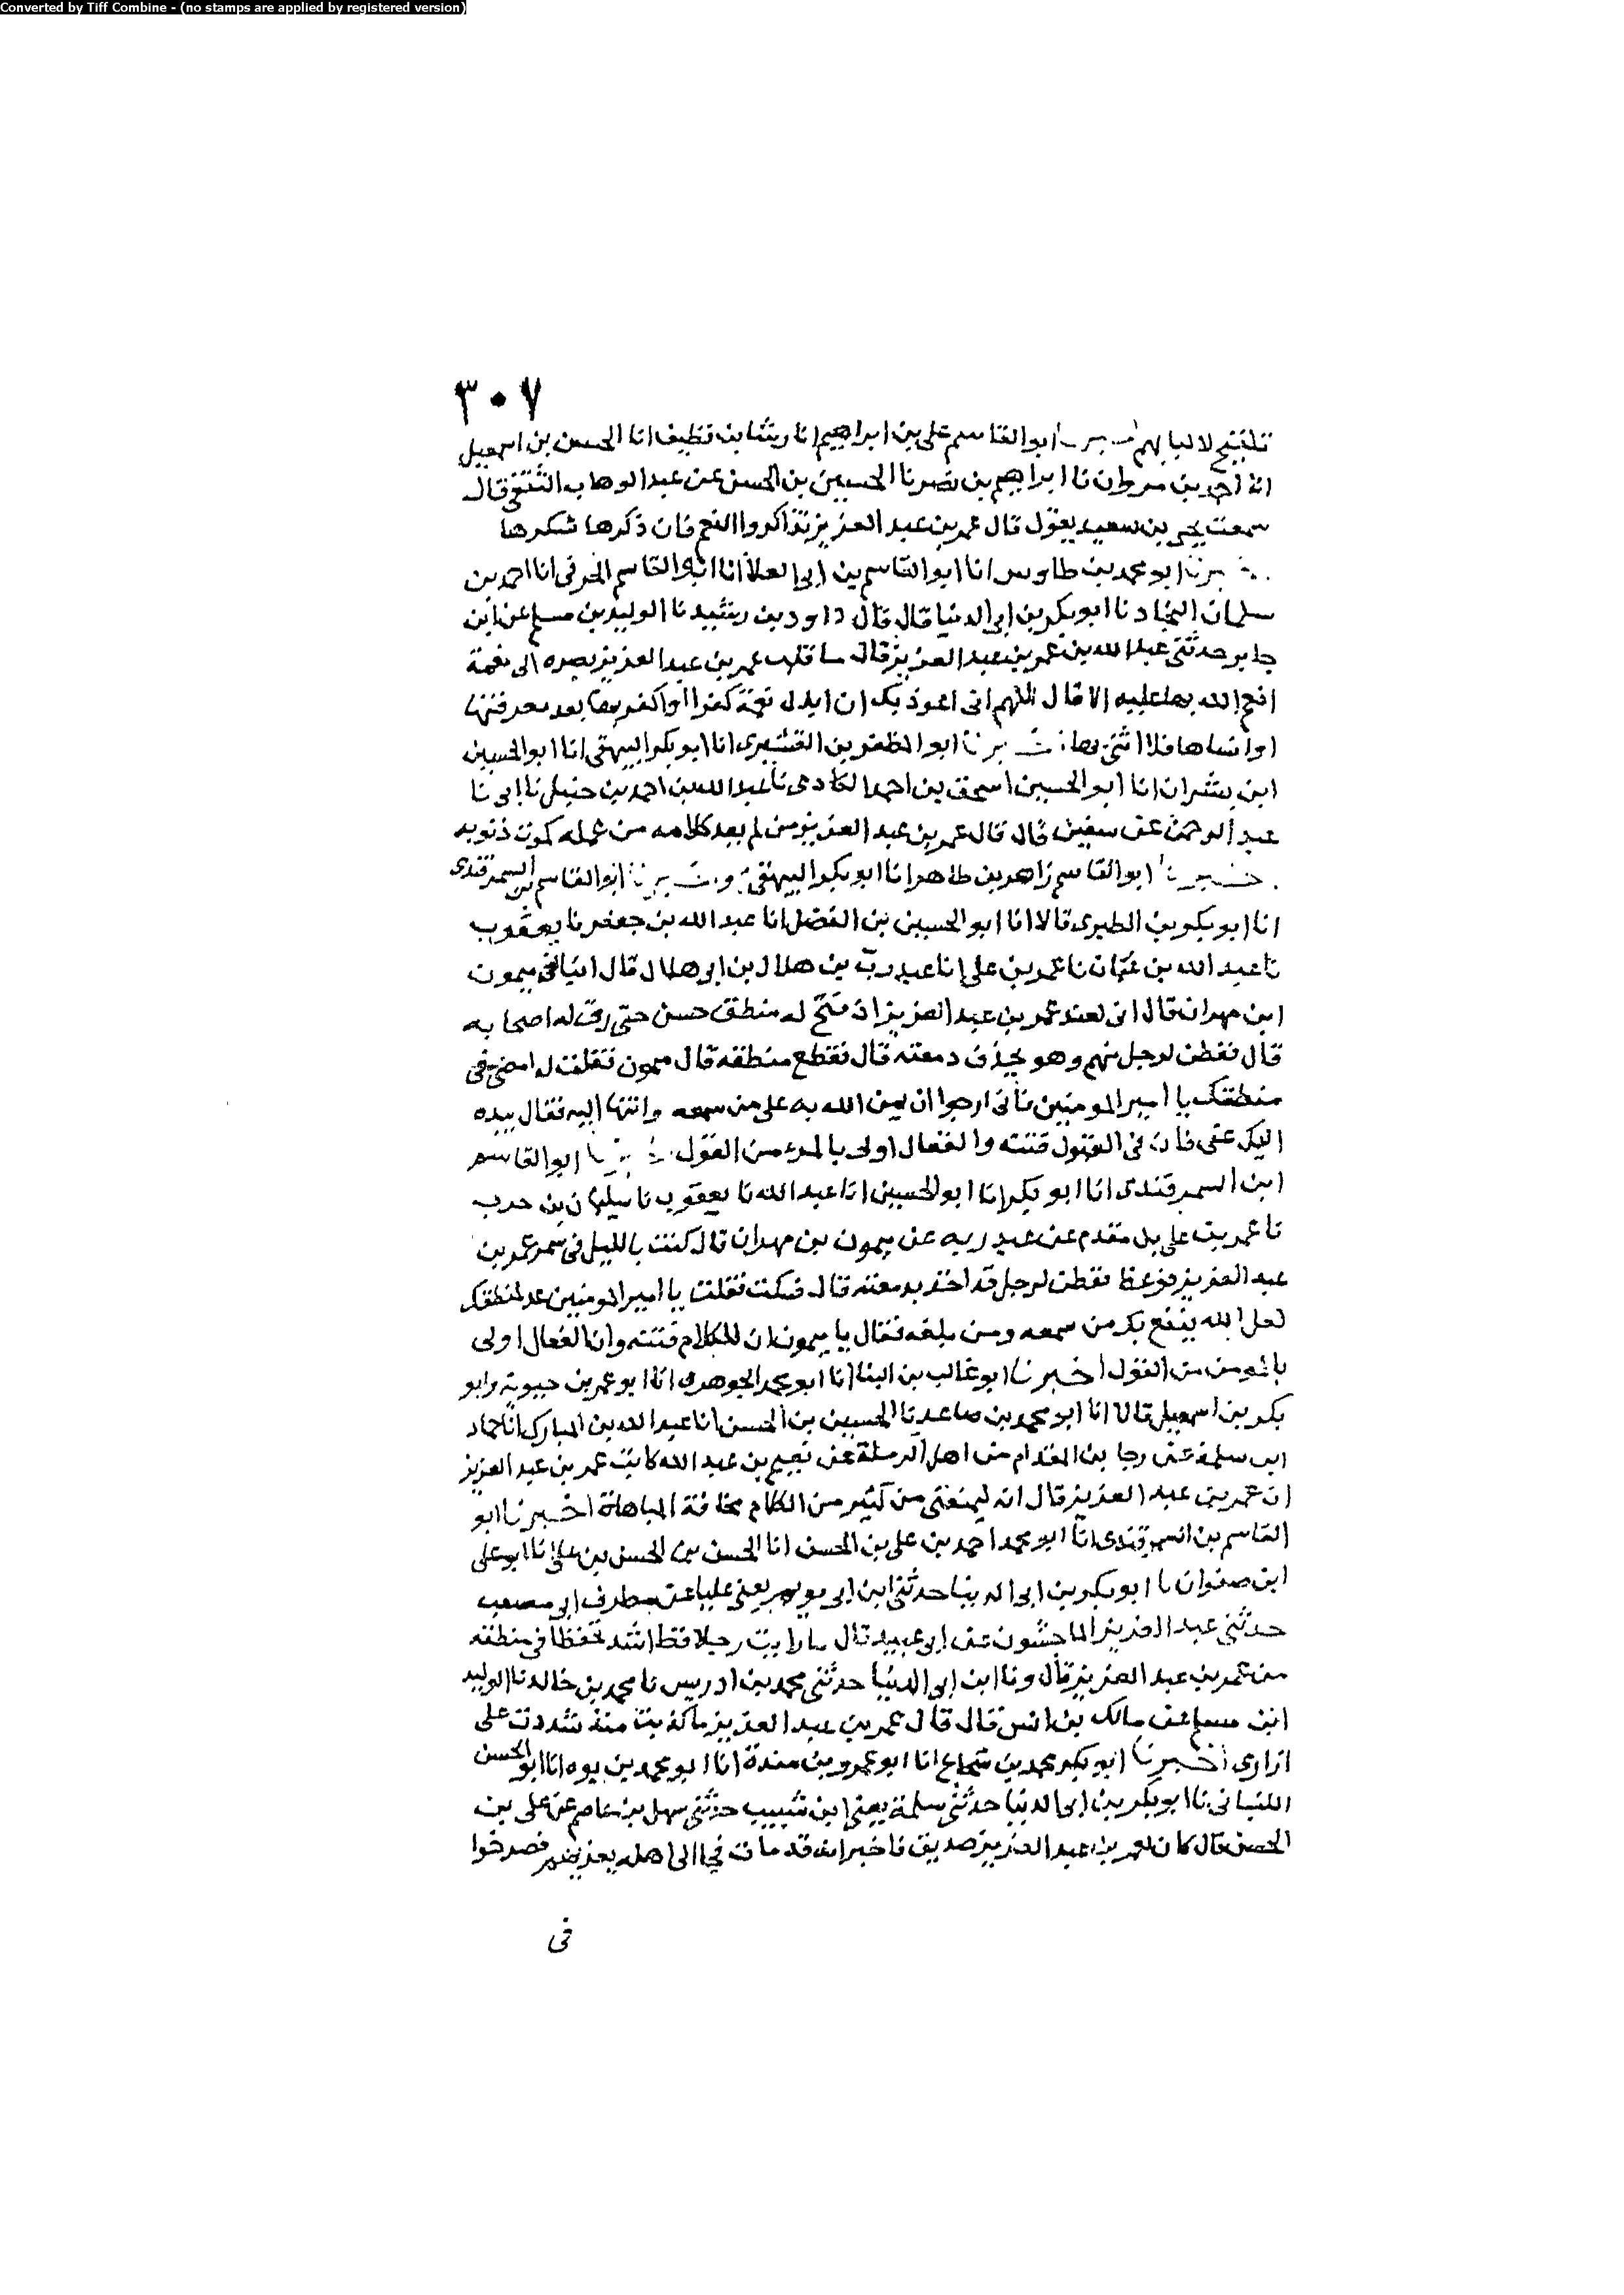 Converted by Tiff Combine - (no stamps are applied by registered version)
٣٠٧
تلقيح لالبابهم أخبرنا ابو القاسم على بن ابراهيم انا رشا بن نظيف انا الحسن بن اسمعيل
انا احمد بن مروان نا ابراهيم بن نصر نا الحسين بن الحسن عن عبد الوهاب الثقفى قال
سمعت يحيى بن سعيد يقول قال عمر بن عبد العزيز تذاكروا النعم فان ذكرها شكرها
اخبرنا ابو محمد بن طاوس انا ابو القاسم بن ابى العلا انا ابو القاسم الخرفى انا احمد بن
سلمان النجاد نا ابو بكر بن ابى الدنيا قال قال داود بن رشيد نا الوليد بن مسلم عن ابن
جابر حدثنى عبد الله بن عمر بن عبد العزيز قال ما قلب عمر بن عبد العزيز بصره الى نعمة
انعم الله بها عليه الا قال اللهم انى اعوذ بك ان ابدل نعمتك كفرا او اكفر بها بعد معرفتها
او انساها فلا اثنى بها اخبرنا ابو المظفر بن القشيرى انا ابو بكر البيهقى انا ابو الحسين
ابن بشران انا ابو الحسين اسحق بن احمد الكادى نا عبد الله بن احمد بن حنبل نا ابى نا
عبد الرحمن عن سفين قال قال عمر بن عبد العزيز من لم يعد كلامه من عمله كثرت ذنوبه
اخبرنا ابو القاسم زاهر بن طاهر انا ابو بكر البيهقى واخبرنا ابو القاسم بن السمرقندى
انا ابو بكر بن الطبرى قالا انا ابو الحسين بن الفضل انا عبد الله بن جعفر نا يعقوب
نا عبد الله بن عثمان نا عمر بن على انا عبد ربه بن هلال بن ابى هلال قال انبانى ميمون
ابن مهران قال انى لعند عمر بن عبد العزيز اذ فتح له منطق حسن حتى رق له اصحابه
قال ففطن لرجل منهم وهو يحذف دمعته قال فقطع منطقه قال ميمون فقلت له امض فى
منطقك يا امير المومنين فانى ارجوا ان يمن الله به على من سمعه وانتها اليه فقال بيده
اليك عنى فان فى القول فتنه والفعال اولى بالمرء من القول اخبرنا ابو القاسم
ابن السمرقندى انا ابو بكر انا ابو الحسين انا عبد الله نا يعقوب نا سليمان بن حرب
نا عمر بن على بن مقدم عن عبد ربه عن ميمون بن مهران قال كنت بالليل فى سمر عمر بن
عبد العزيز فوعظ ففطن لرجل قد اخذ بدمعته قال فسكت فقلت يا امير المومنين عد لمنطقك
لعل الله ينفع بك من سمعه ومن بلغه فقال يا ميمون ان للكلام فتنه وان الفعال اولى
بالمومن من القول اخبرنا ابو غالب بن البنا انا ابو محمد الجوهرى انا ابو عمر بن حيوية وابو
بكر بن اسمعيل قالا انا ابو محمد بن صاعد نا الحسين بن الحسن انا عبد الله بن المبارك انا حماد
ابن سلمة عن رجا بن المقدام من اهل الرملة عن نعيم بن عبد الله كاتب عمر بن عبد العزيز
ان عمر بن عبد العزيز قال انه ليمنعنى من كثير من الكلام مخافة المباهاة اخبرنا ابو
القاسم بن السمرقندى انا ابو محمد احمد بن على بن الحسن انا الحسن بن الحسن بن على انا ابو على
ابن صفوان نا ابو بكر بن ابى الدنيا حدثنى ابن ابى مريم يعنى عليا عن مطرف ابى مصعب
حدثنى عبد العزيز الماجشون عن ابى عبيد قال ما رايت رجلا قط اشد تحفظا فى منطقه
من عمر بن عبد العزيز قال ونا ابن ابى الدنيا حدثنى محمد بن ادريس نا محمد بن خالد نا الوليد
ابن مسلم عن مالك بن انس قال قال عمر بن عبد العزيز ما كذبت منذ شددت على
ازارى اخبرنا ابو بكر محمد بن شجاع انا ابو عمرو بن مندة انا ابو محمد بن يوه انا ابو الحسن
اللنبانى نا ابو بكر بن ابى الدنيا حدثنى سلمة يعنى ابن شبيب حدثنى سهل بن عاصم عن على بن
الحسن قال كان لعمر بن عبد العزيز صديق فاخبر انه قد مات فجا الى اهله يعزيهم فصرخوا
فى